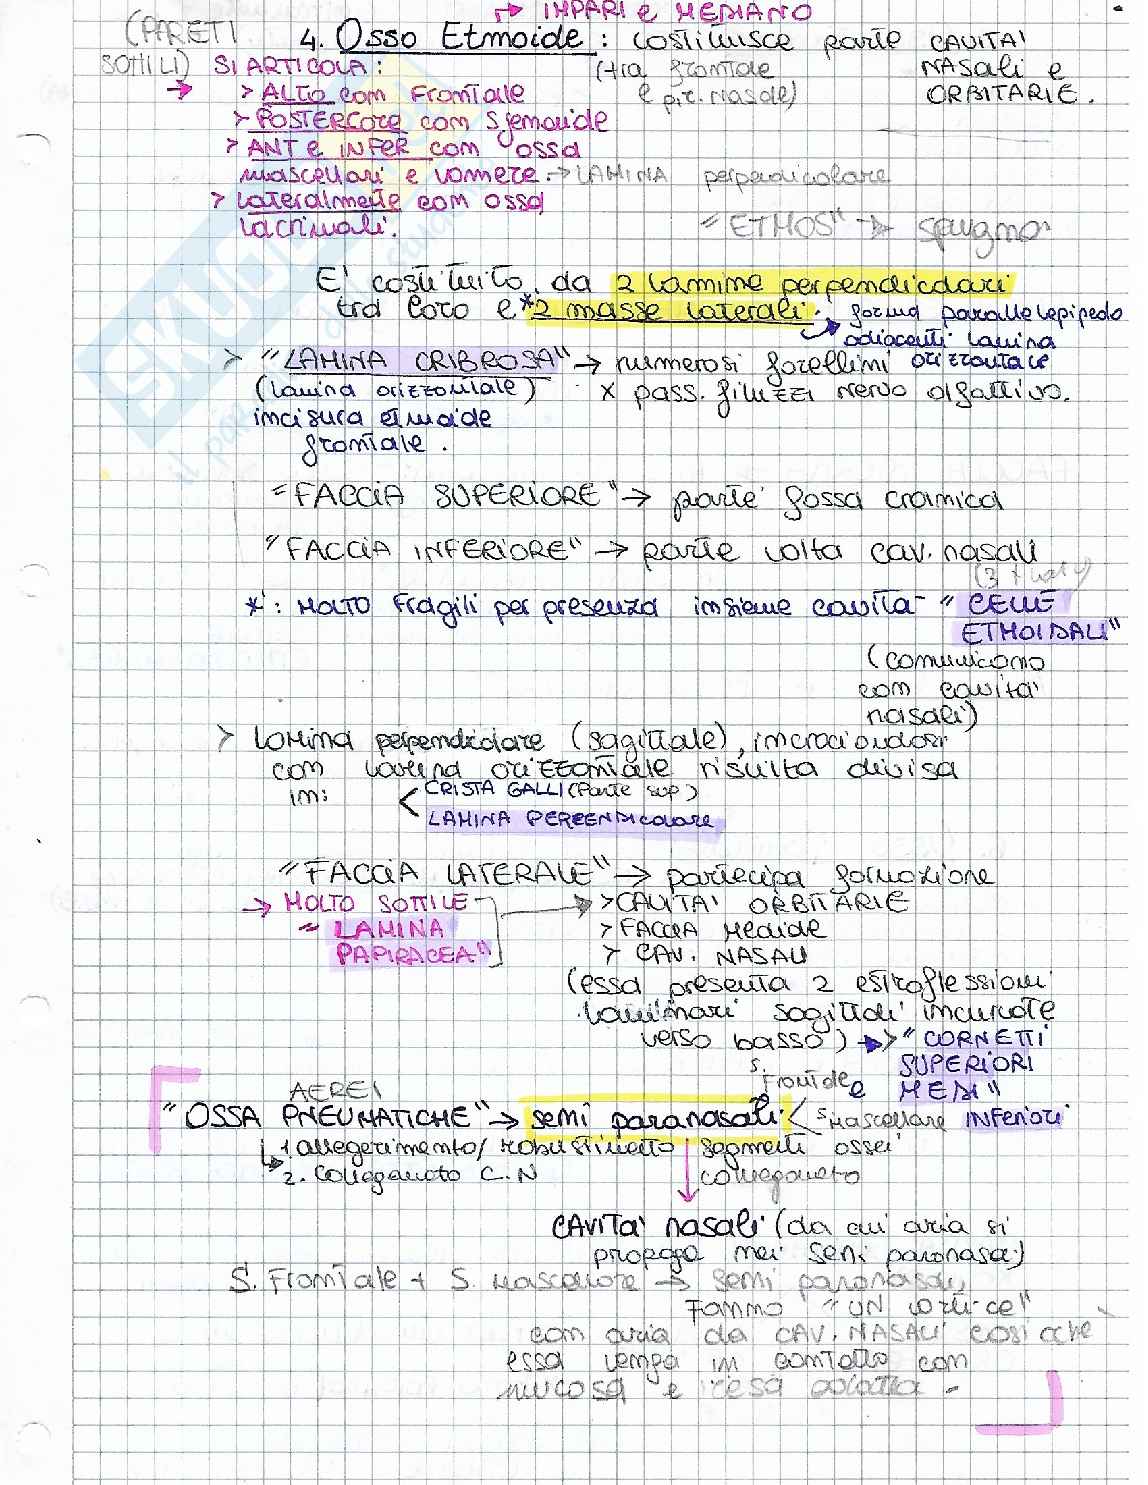 → IMPARI e MEDIANO
(PARETI SOTTILI)
4. Osso Etmoide: costituisce parte CAVITA'
(tra frontale e pir. Nasale)
NASali e ORBITARIE.
→ SI ARTICOLA:
> ALTO com Frontale
> POSTERIORE com Sfenoide
> ANT e INFER com ossa
mascellari e vomere. → LAMINA perpendicolare
> Lateralmente com ossa
lacrimali.
"ETMOS" → spugna
E' costituito da 2 lamine perpendicolari
tra loro e *2 masse laterali. → forma parallelepipedo
adiacenti lamina orizzontale
> "LAMINA CRIBROSA" → numerosi forellini
(lamina orizzontale) x pass. filuzzi nervo olfattivo.
incisura etmoide
frontale.
"FACCIA SUPERIORE" → parte fossa cranica
"FACCIA INFERIORE" → parte volta cav. nasali
*: MOLTO Fragili per presenza insieme cavità "CELLE
ETMOIDALI"
(comunicano
com cavità
nasali)
> Lamina perpendicolare (sagittale), incrociandosi
com lamina orizzontale risulta divisa
im: < CRISTA GALLI (Parte sup)
LAMINA PERPENDICOLARE
"FACCIA LATERALE" → partecipa formazione
→ MOLTO SOTTILE → > CAVITA' ORBITARIE
"LAMINA > FACCIA Mediale
PAPIRACEA" > CAV. NASALI
(essa presenta 2 estroflessioni
laminari sagittali incurvate
verso basso) → > "CORNETTI
SUPERIORI
e MEDI"
INFERIORI
AEREI
"OSSA PNEUMATICHE" → semi paranasali < s. Frontale
s. mascellare
↳ 1 alleggerimento/ robustimento segmenti ossei
2. Collegamento C.N
collegamento
CAVITA' nasali (da cui aria si
propaga nei seni paranasali)
S. Frontale + S. Mascellare → semi paranasali
Fanno "UN vortice"
com aria da CAV. NASALI così che
essa venga in contatto com
mucosa e resa